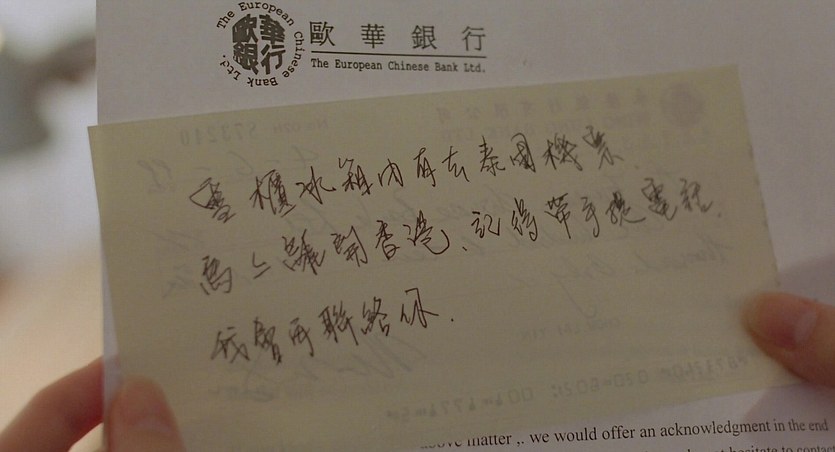 The European Chinese Bank Ltd.
歐華銀行
歐華銀行
The European Chinese Bank Ltd.
雪櫃冰箱內有去泰國機票
馬上離開香港、記得帶手提電話.
我會再聯絡你.
above matter ,. we would offer an acknowledgment in the end
hesitate to contact